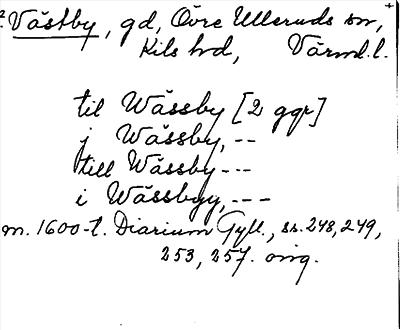 2. Västby, gd, Övre Ulleruds sn,
Kils hd, Värml. l.
til Wässby [2 ggr]
j Wässby, --
till Wässby ---
i Wässbyy, ---
m. 1600-t. Diarium Gyll., ss. 248, 249,
253, 257. orig.